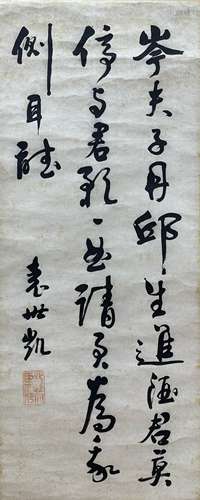 岑夫子丹邱生進酒君莫
停与君歌一曲請君為我
側耳聽
袁世凱